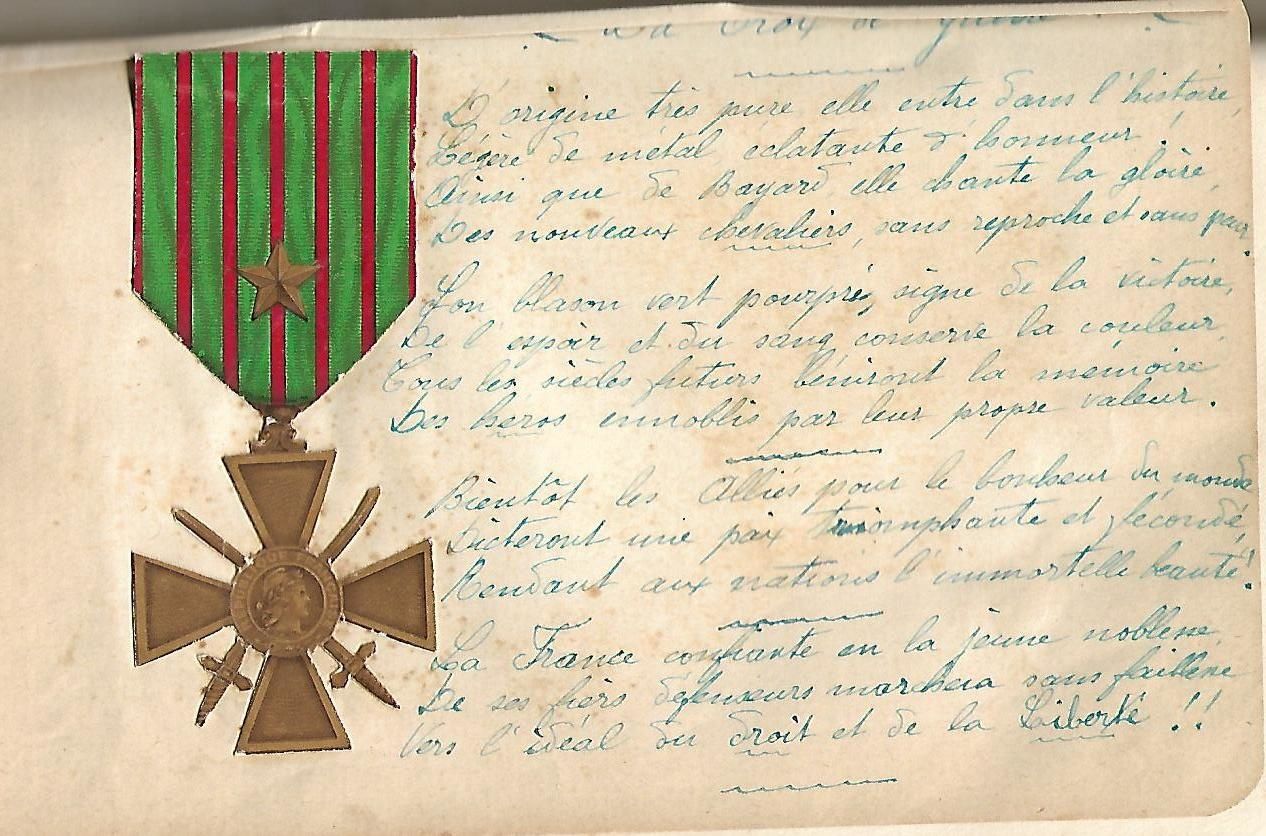 La Croix de guerre
D'origine très pure elle entre dans l'histoire,
Légère de métal, éclatante d'honneur !
Ainsi que de Bayard elle chante la gloire,
Des nouveaux chevaliers, sans reproche et sans peur.
Son blason vert pourpré, signe de la victoire,
De l'espoir et du sang conserve la couleur,
Tous les siècles futurs béniront la mémoire
Des héros ennoblis par leur propre valeur.
Bientôt les Alliés pour le bonheur du monde
Dicteront une paix triomphante et féconde,
Rendant aux nations l'immortelle beauté !
La France confiante en la jeune noblesse,
De ses fiers défenseurs marchera sans faiblesse
Vers l'idéal du droit et de la Liberté !!